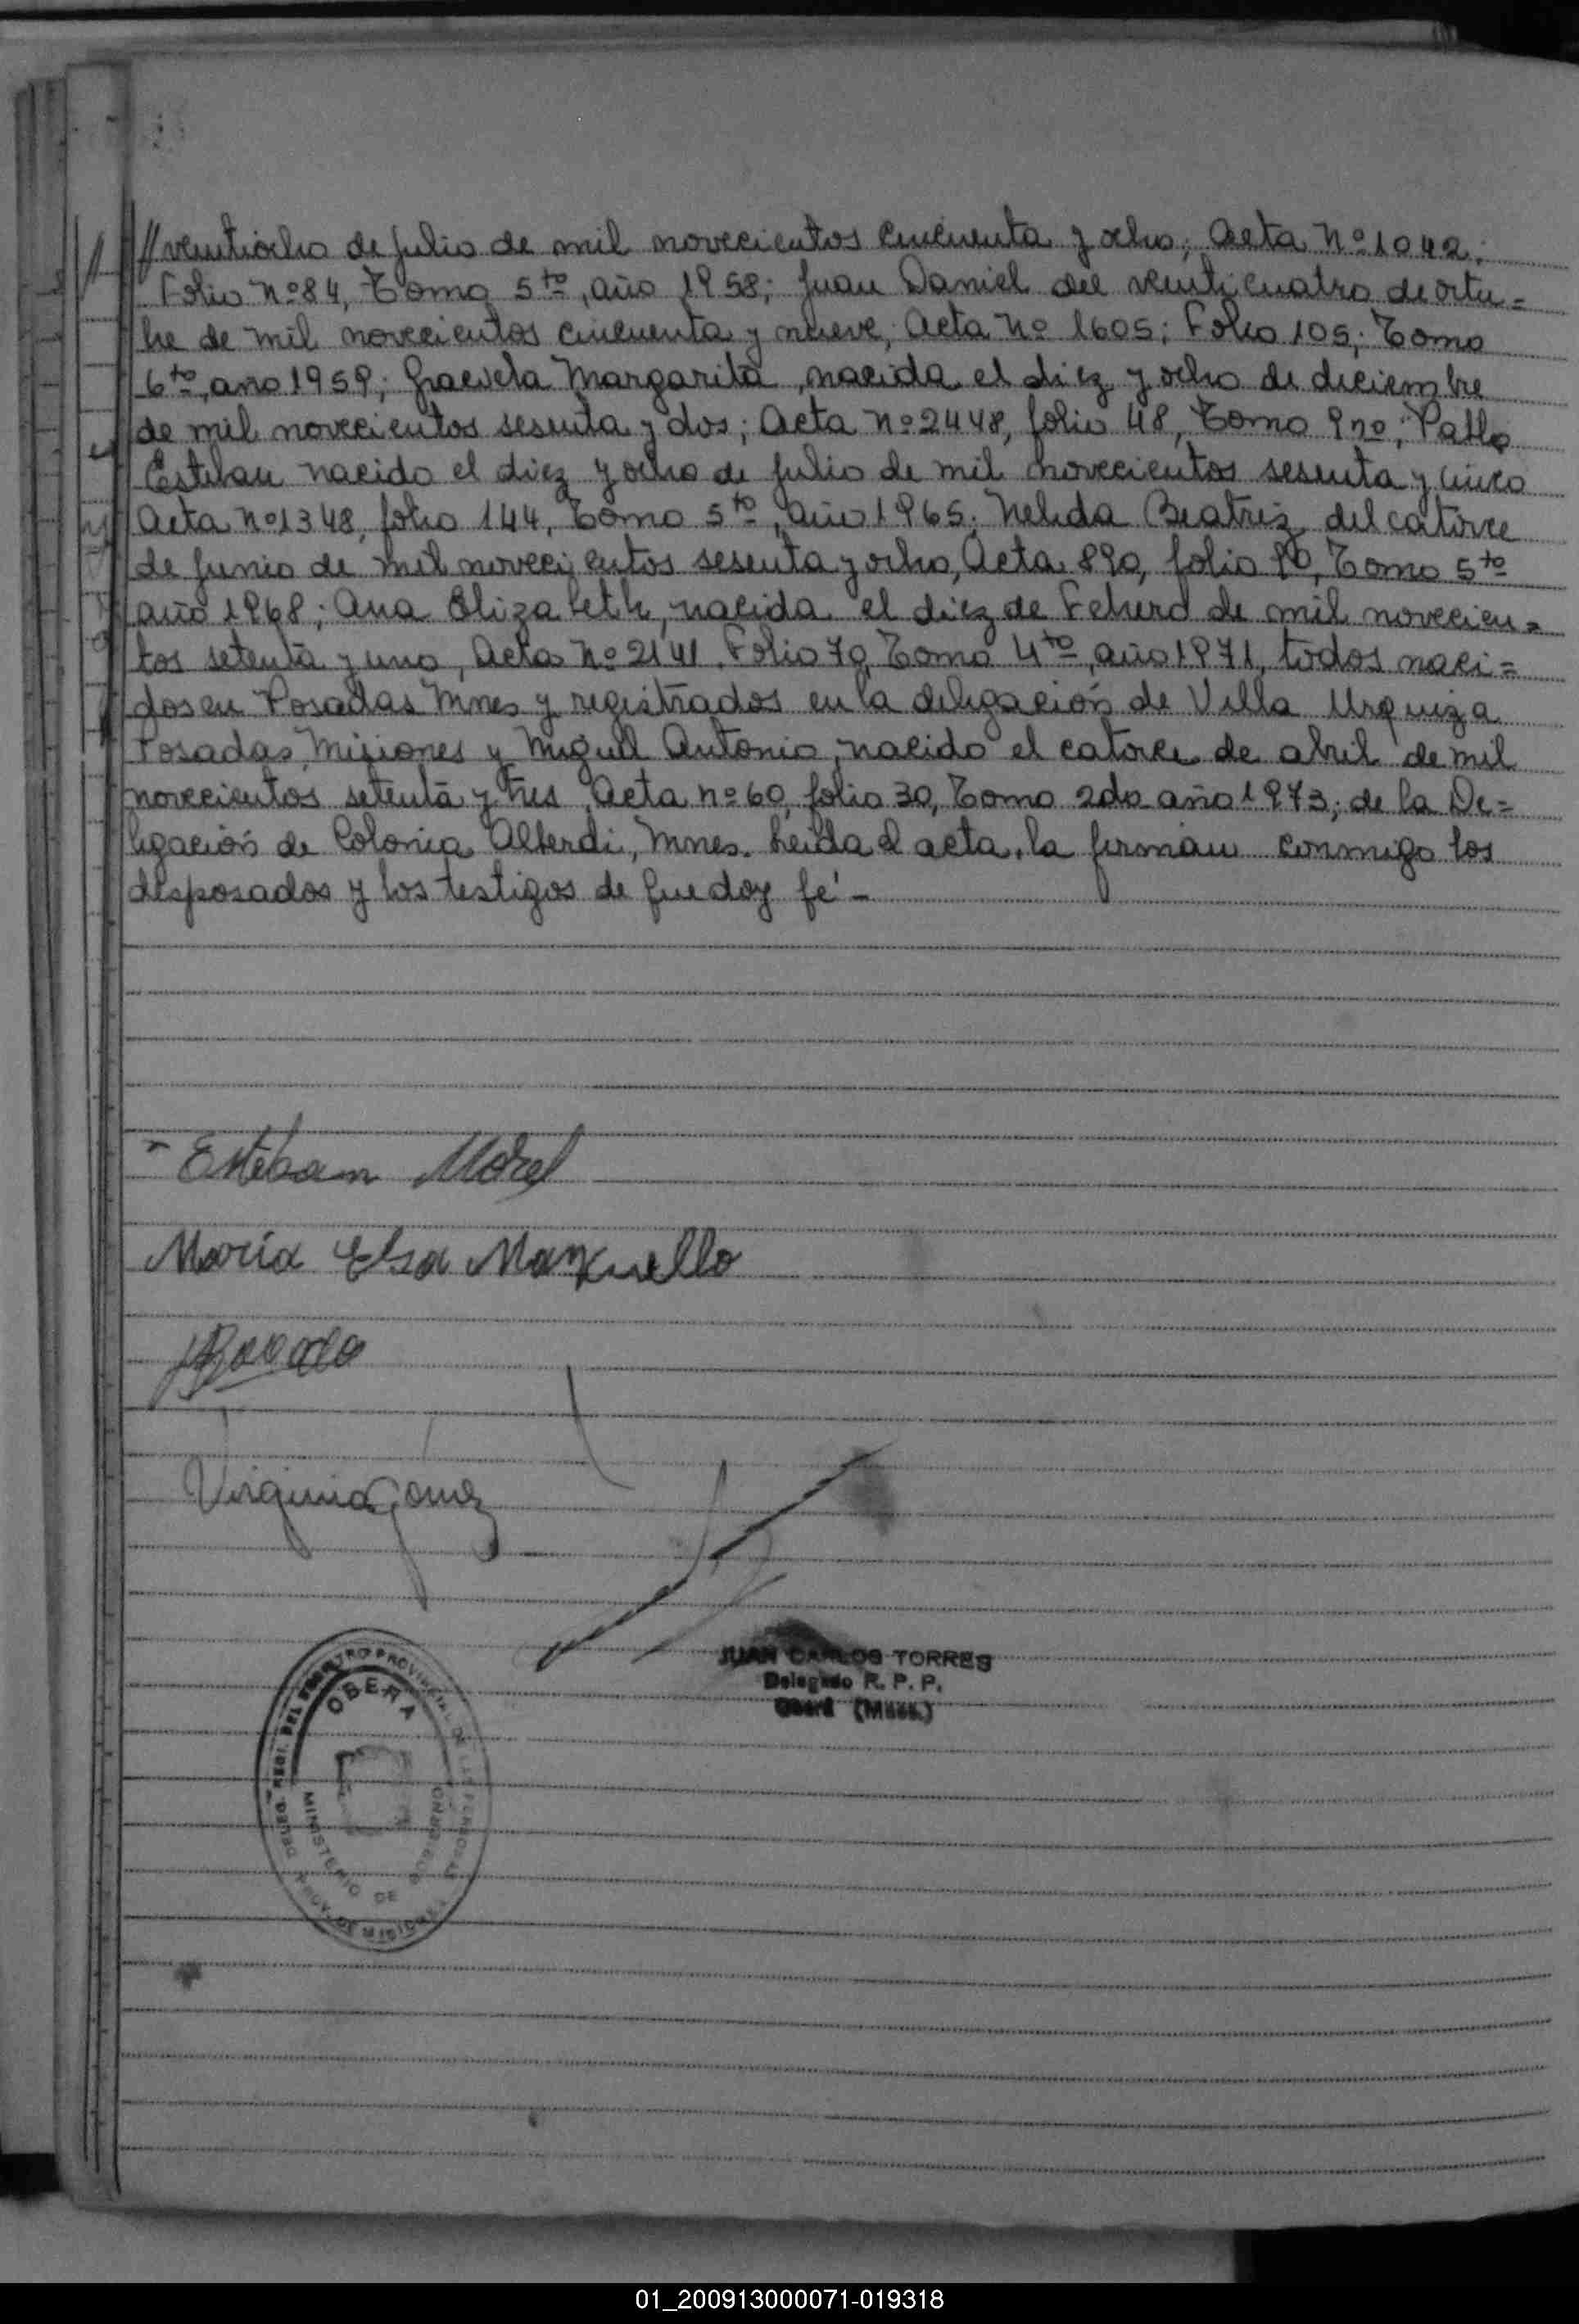 //ventiocho de julio de mil novecientos cincuenta y ocho; Acta Nº 1042;
Folio nº 84, Tomo 5to, año 1958; Juan Daniel del venticuatro de octu=
bre de mil novecientos cincuenta y nueve; Acta Nº 1605; Folio 105; Tomo
6to, año 1959; Graciela Margarita, nacida el diez y ocho de diciembre
de mil novecientos sesenta y dos; Acta nº 2448, folio 48, Tomo 9no; Pablo
Esteban nacido el diez y ocho de julio de mil novecientos sesenta y cinco
Acta nº 1348, folio 144, Tomo 5to, año 1965. Nelida Beatriz del catorce
de Junio de mil novecientos sesenta y ocho, Acta 890, folio 90, Tomo 5to
año 1968; Ana Elizabeth, nacida el diez de Febrero de mil novecien=
tos setenta y uno, Acta Nº 2141. Folio 70 Tomo 4to, año 1971, todos naci=
dos en Posadas Mnes y registrados en la delegación de Villa Urquiza
Posadas, Misiones y Miguel Antonio, nacido el catorce de abril de mil
novecientos setenta y tres, Acta nº 60, folio 30, Tomo 2do año 1973; de la De=
legación de Colonia Alberdi, Mnes. Leida el acta, la firman conmigo los
desposados y los testigos de que doy fé -
- Esteban Morel
María Elsa Manzuello
Virginia Gomez
JUAN CARLOS TORRES
Delegado R. P. P.
Oberá (Mnes.)
OBERA
MINISTERIO DE GOBIERNO
PROV. DE MISIONES
01_200913000071-019318